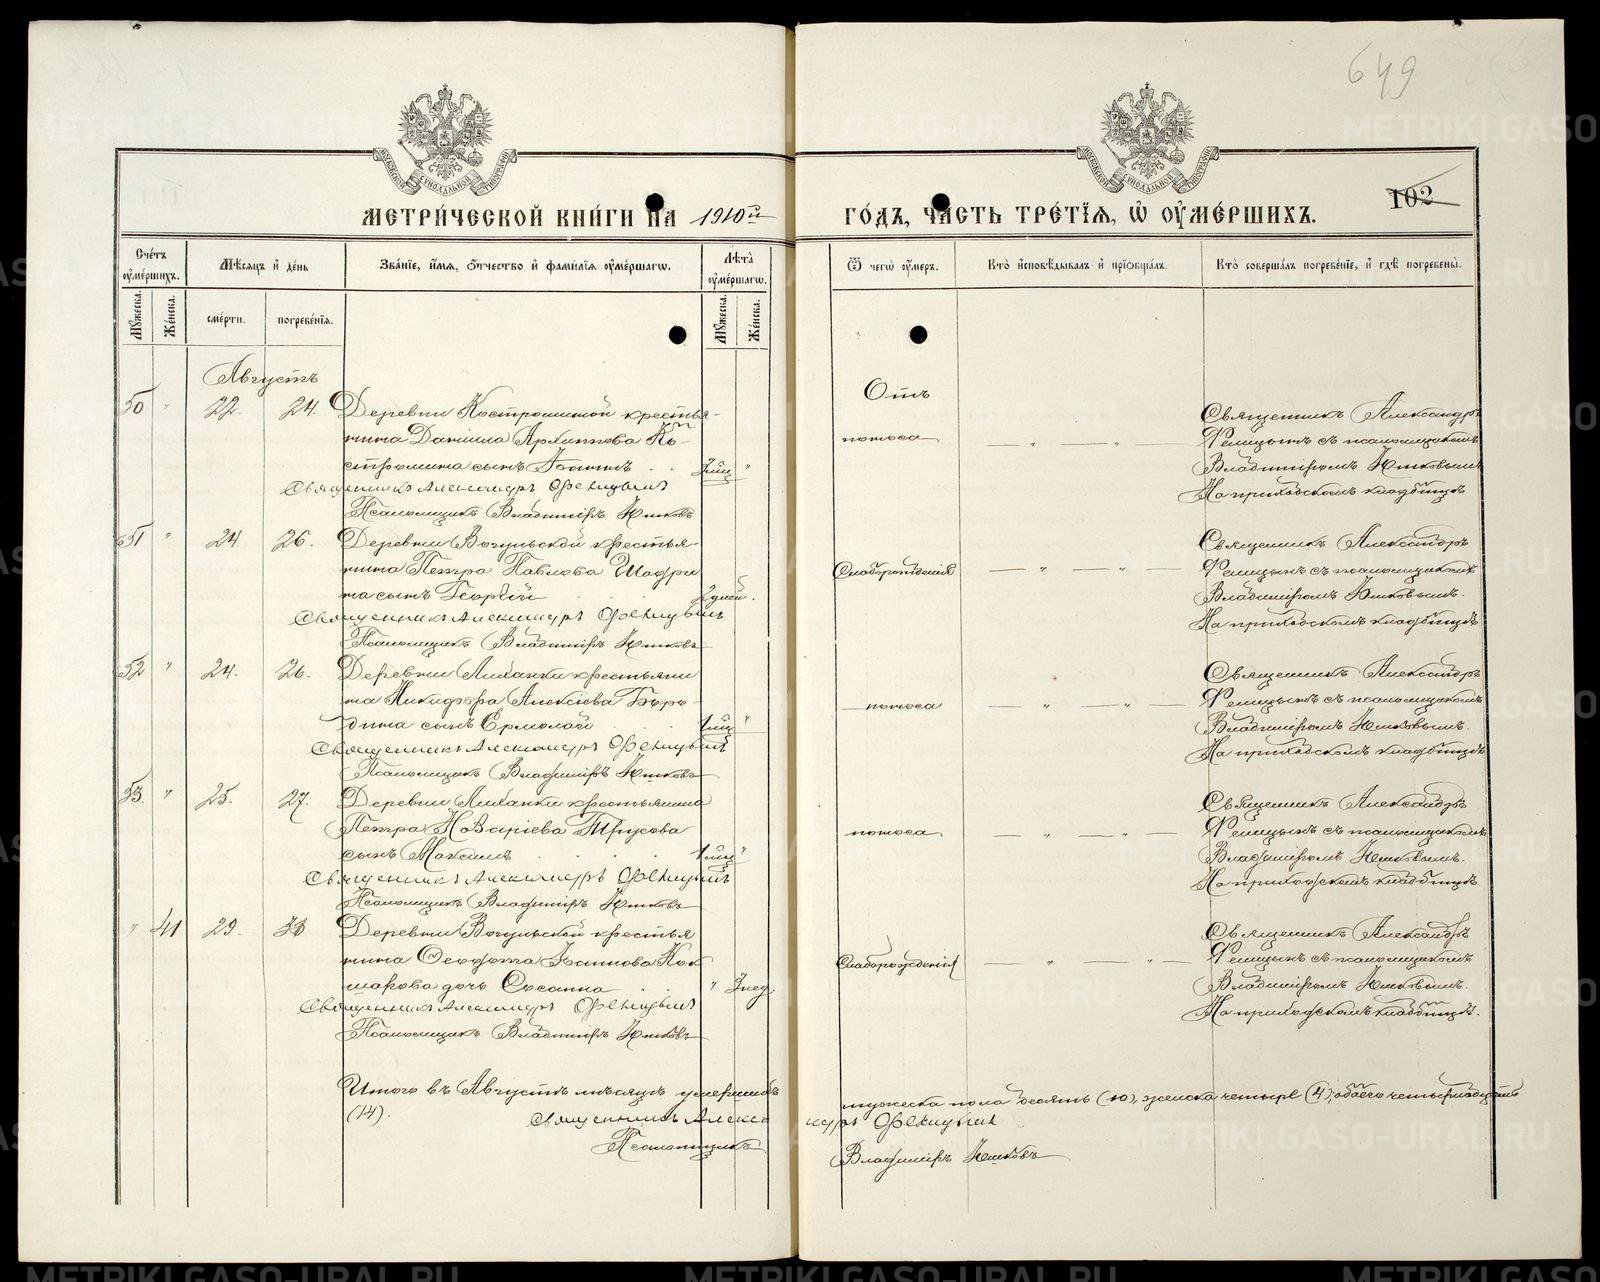 649
102
МЕТРИ́ЧЕСКОЙ КНИ́ГИ НА 1910й ГО́ДЪ, ЧА́СТЬ ТРЕ́ТІѦ, Ѡ҆ ОУ҆МЕ́РШИХЪ.
Сче́тъ оу҆ме́ршихъ.
Мѣ́сяцъ и҆ де́нь
Зва́ніе, и҆́мѧ, ѻ҆́тчество и҆ фами́лїѧ оу҆ме́ршагѡ.
Лѣ́та оу҆ме́ршагѡ.
Ѿ чегѡ̀ оу҆́меръ.
Кто̀ и҆сповѣ́дывалъ и҆ прїѡбща́лъ.
Кто̀ соверша́лъ погребе́ніе, и҆ гдѣ̀ погребены̀.
Мꙋ́жеска.
Же́нска.
сме́рти.
погребе́нїѧ.
Мꙋ́жеска.
Же́нска.
Августъ
50 " 22. 24. Деревни Костроминой крестья-
нина Даніила Архиппова Ко-
стромина сынъ Іоаннъ . . "
Священникъ Александръ Фелицынъ
Псаломщикъ Владиміръ Юшковъ
Отъ
поноса — " — " —
Священникъ Александръ
Фелицынъ съ псаломщикомъ
Владиміромъ Юшковымъ
На приходскомъ кладбищѣ
51 " 24 26. Деревни Вогульской крестья-
нина Петра Павлова Шадри
на сынъ Георгій . . 2 дней.
Священникъ Александръ Фелицынъ
Псаломщикъ Владиміръ Юшковъ
Слаборожденія — " — " —
Священникъ Александръ
Фелицынъ съ псаломщикомъ
Владиміромъ Юшковымъ.
На приходскомъ кладбищѣ
52 " 24. 26. Деревни Ляханки крестьяни
на Никифора Алексіева Бѣро-
дина сынъ Ермолай . "
Священникъ Александръ Фелицынъ
Псаломщикъ Владиміръ Юшковъ
поноса — " — " —
Священникъ Александръ
Фелицынъ съ псаломщикомъ
Владиміромъ Юшковымъ.
На приходскомъ кладбищѣ
53. " 25. 27. Деревни Ляханки крестьянина
Петра Трусова
сынъ Максимъ . . . "
Священникъ Александръ Фелицынъ
Псаломщикъ Владиміръ Юшковъ
поноса — " — " —
Священникъ Александръ
Фелицынъ съ псаломщикомъ
Владиміромъ Юшковымъ.
На приходскомъ кладбищѣ
" 41 29. Деревни Вогульской крестья
нина Ѳеодота Іоаннова Кок
шарова дочь Сосанна . . " 3 нед.
Священникъ Александръ Фелицынъ
Псаломщикъ Владиміръ Юшковъ
Слаборожденія — " — " —
Священникъ Александръ
Фелицынъ съ псаломщикомъ
Владиміромъ Юшковымъ.
На приходскомъ кладбищѣ.
Итого въ Августѣ мѣсяцѣ умершихъ мужеска пола десять (10), женска четыре (4), обоего четырнадцать
(14). Священникъ Александръ Фелицынъ
Псаломщикъ Владиміръ Юшковъ